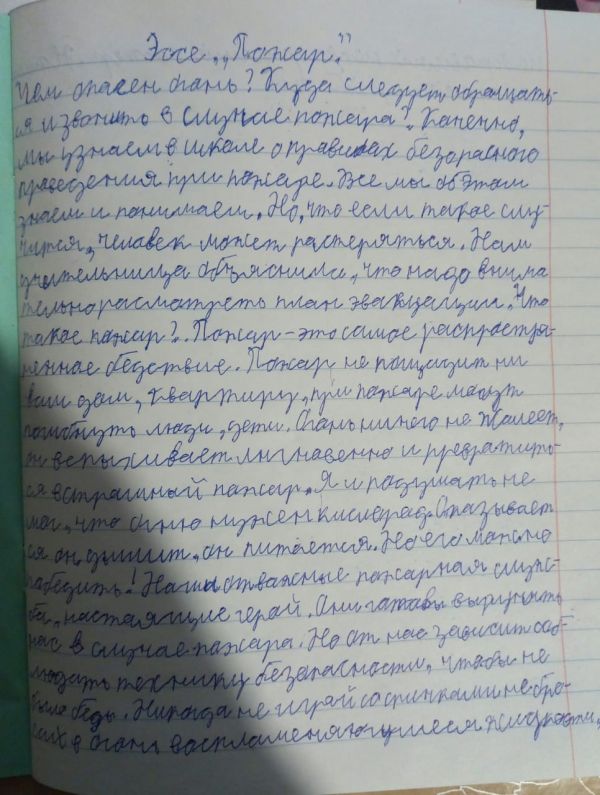 Эссе „Пожар".
Чем опасен огонь? Куда следует обращать-
ся и звонить в случае пожара? Конечно,
мы узнаем в школе о правилах безопасного
поведения при пожаре. Уже мы об этом
знаем и понимаем. Но, что если такое слу-
чится, человек может растеряться. Нам
учительница объяснила, что надо внима
тельно расматреть план эвакуации. Что
такое пожар? Пожар - это самое распростра-
ненное бедствие. Пожар не пощадит ни
ваш дом, квартиру, при пожаре могут
погибнуть люди, дети. Огонь ничего не жалеет,
он вспыхивает мгновенно и превратить-
ся в страшный пожар. Я и подумать не
мог, что огню нужен кислород. Оказывает
ся он дышит, он питается. Но его можно
победить! Наши отважные пожарная служ-
ба, настоящие герой. Они готовы выручить
нас в случае пожара. Но от нас зависит соб-
людать технику безопасности, чтобы не
было беды. Никогда не играй со спичками не бро-
сай в огонь воспламеняющиеся жидкости,